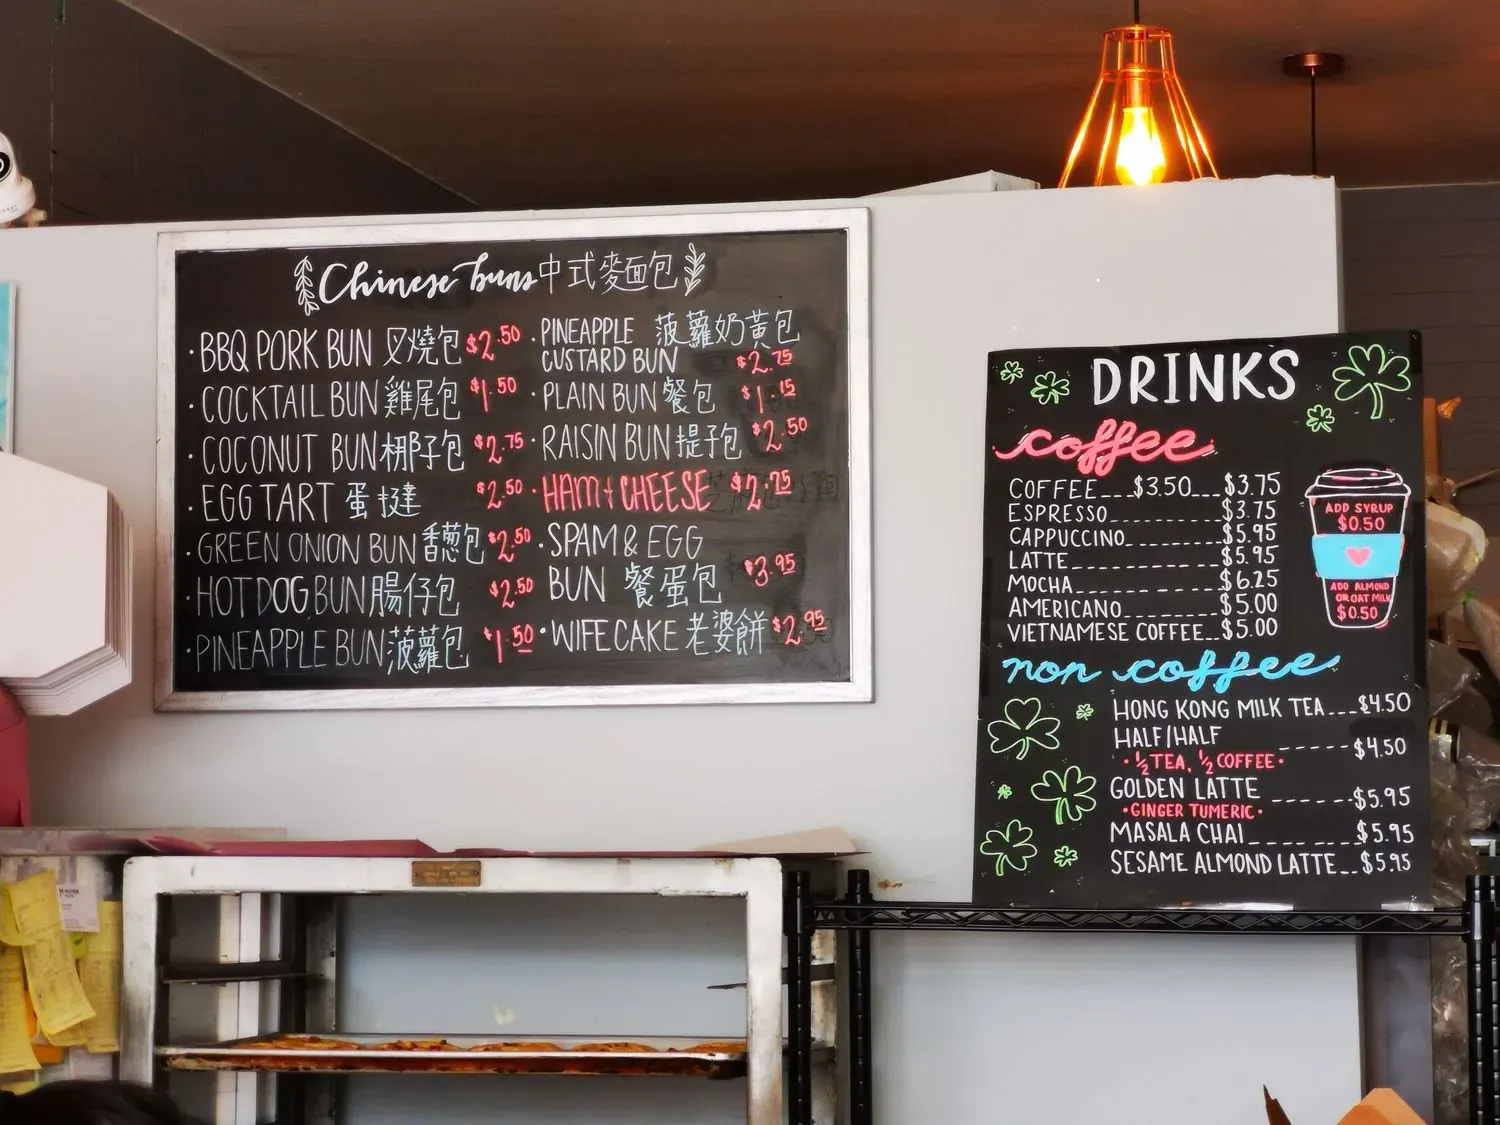 Chinese buns 中式麥面包
· BBQ PORK BUN 叉燒包 $2.50
· COCKTAIL BUN 雞尾包 $1.50
· COCONUT BUN 椰子包 $2.75
· EGG TART 蛋撻 $2.50
· GREEN ONION BUN 香蔥包 $2.50
· HOT DOG BUN 腸仔包 $2.50
· PINEAPPLE BUN 菠蘿包 $1.50
· PINEAPPLE 菠蘿奶黃包
CUSTARD BUN $2.75
· PLAIN BUN 餐包 $1.15
· RAISIN BUN 提子包 $2.50
· HAM + CHEESE $2.75
· SPAM & EGG
BUN 餐蛋包 $3.95
· WIFE CAKE 老婆餅 $2.95
DRINKS
coffee
COFFEE___$3.50___$3.75
ESPRESSO $3.75
CAPPUCCINO $5.95
LATTE $5.95
MOCHA $6.25
AMERICANO $5.00
VIETNAMESE COFFEE $5.00
ADD SYRUP
$0.50
ADD ALMOND
OR OAT MILK
$0.50
non coffee
HONG KONG MILK TEA $4.50
HALF/HALF $4.50
· ½ TEA, ½ COFFEE ·
GOLDEN LATTE $5.95
· GINGER TUMERIC ·
MASALA CHAI $5.95
SESAME ALMOND LATTE $5.95